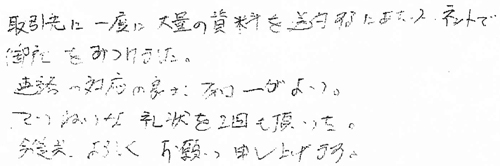 取引先に一度に大量の資料を送付するにあたり、ネットで
御社をみつけました。
連絡の対応の良さ、フォローがよい。
ていねいな礼状を2回も頂いた。
今後共、よろしくお願い申し上げます。